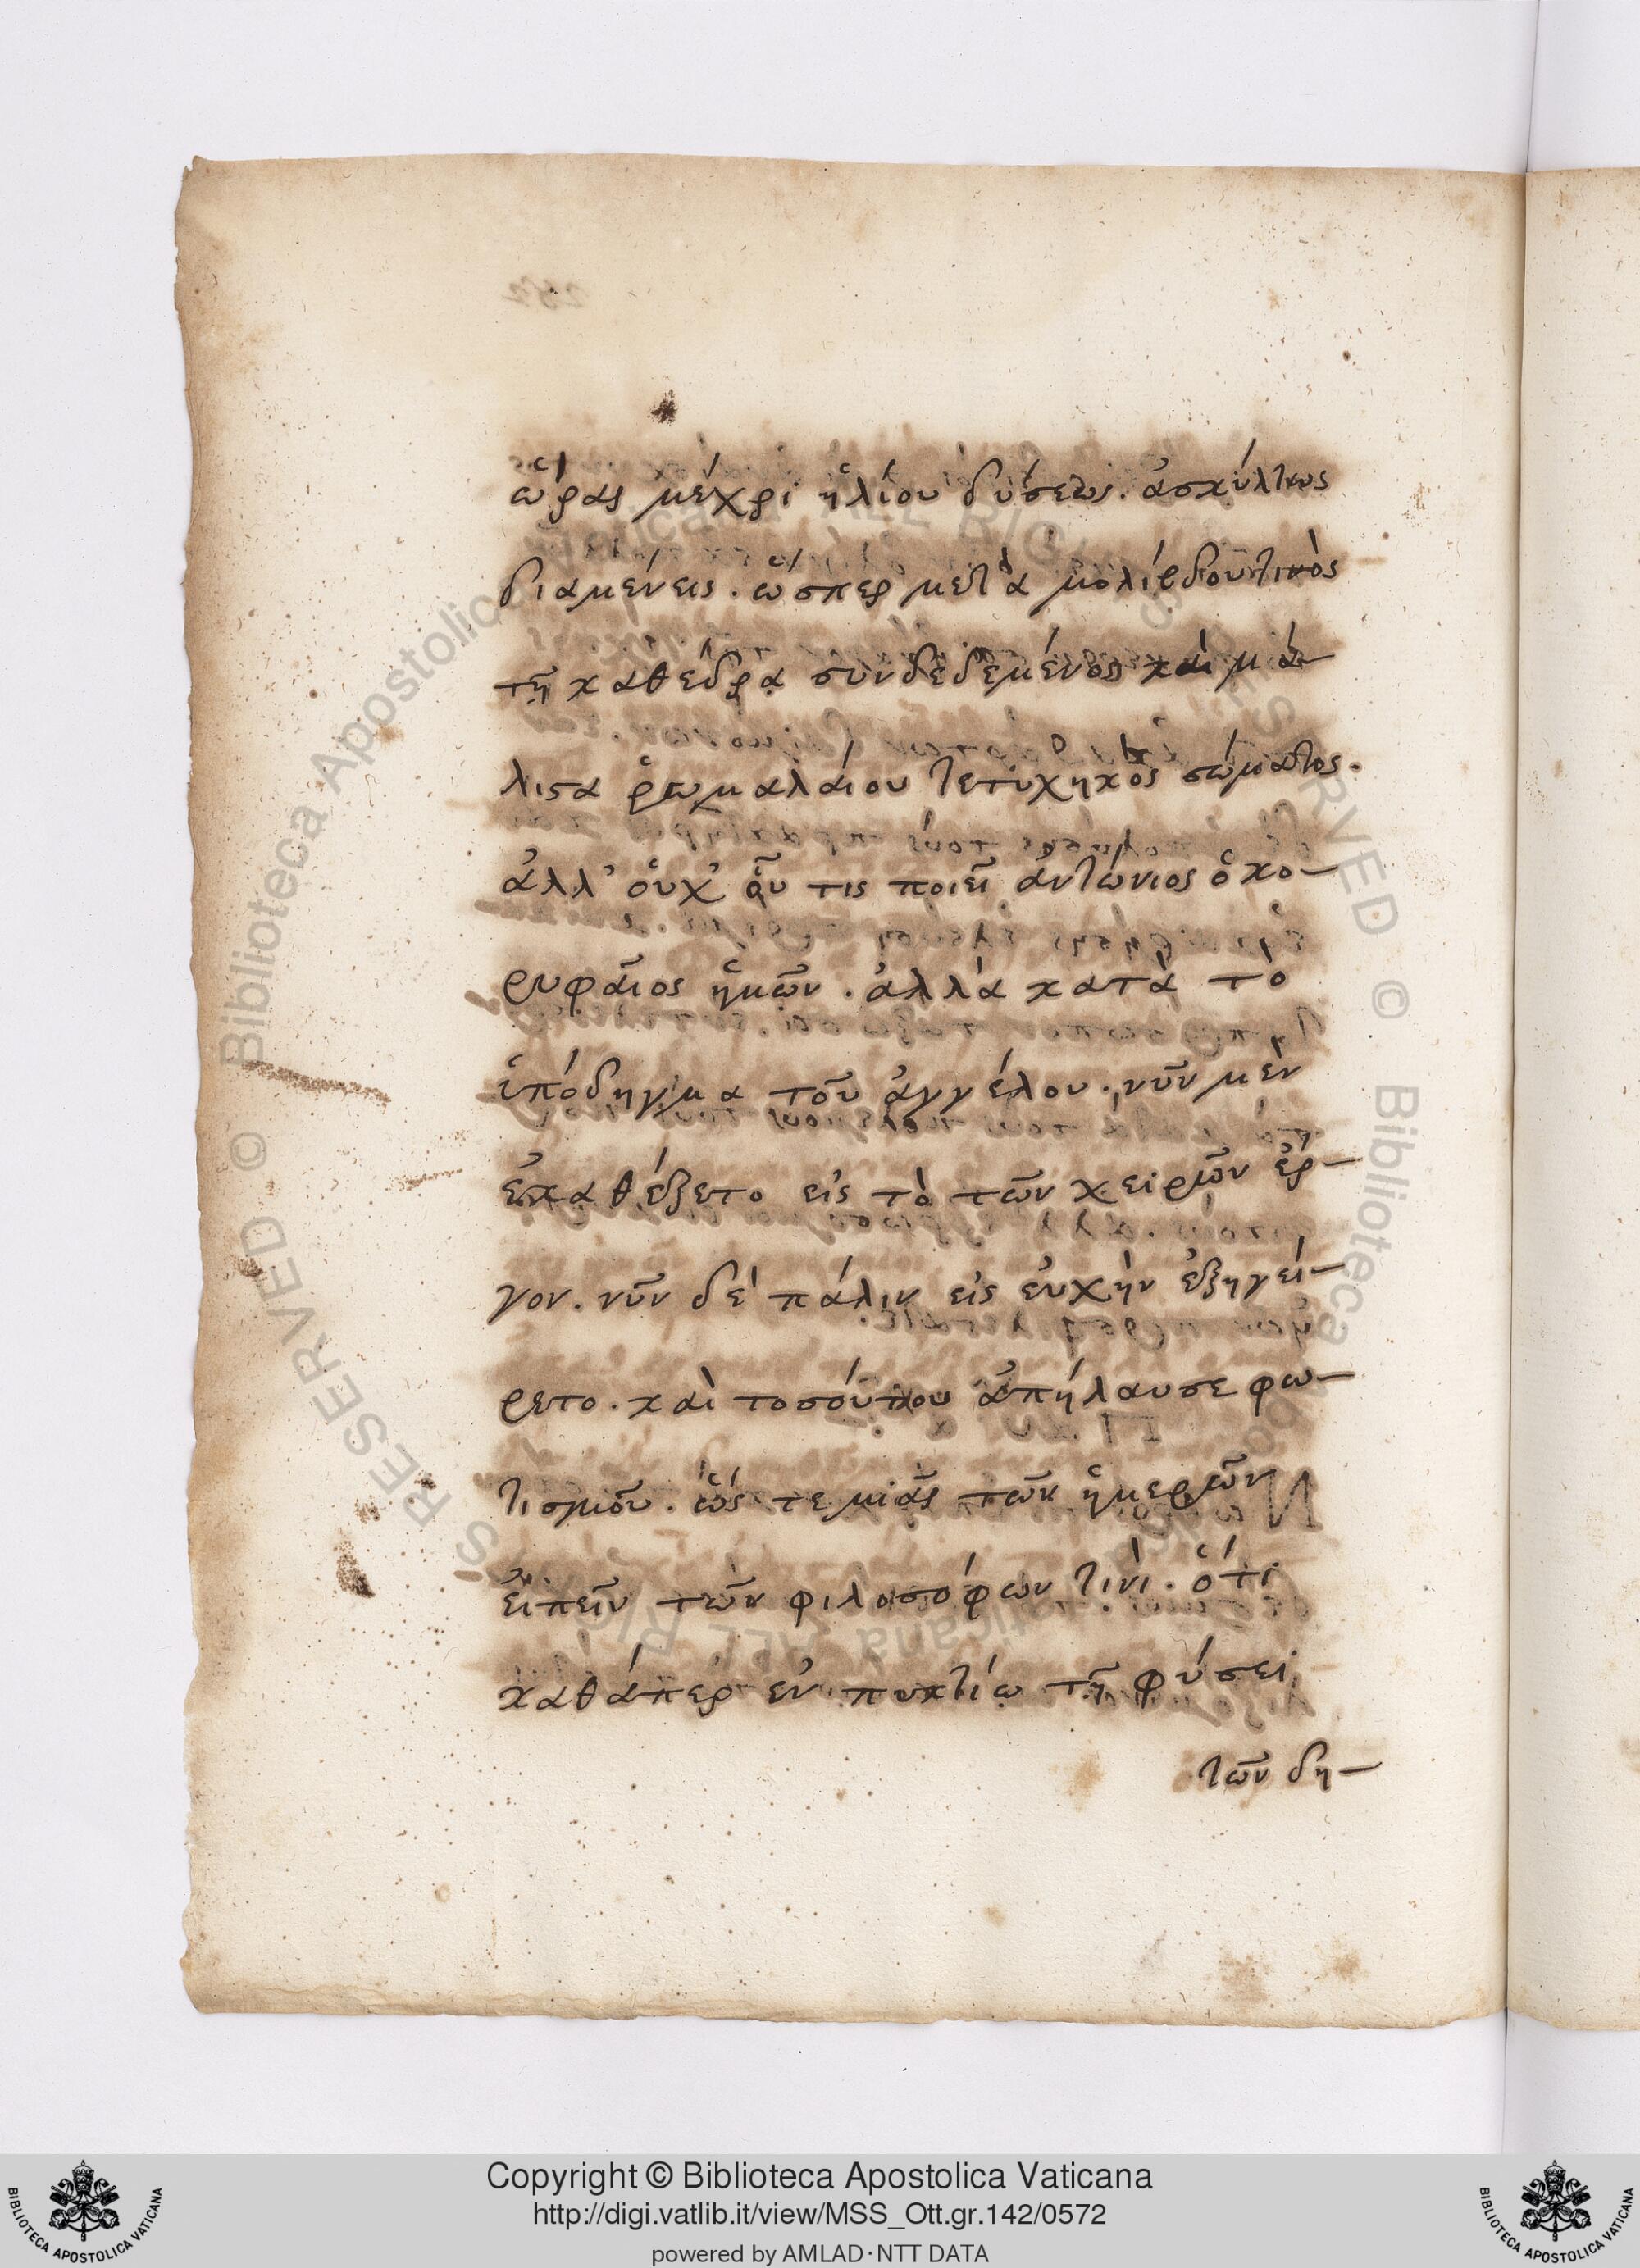 ὥρας μέχρι ἡλίου δύσεως. ἀσκύλτως
διαμένεις. ὥσπερ μετὰ μολίβδου τινὸς
τῇ καθέδρᾳ συνδεδεμένος καὶ μά-
λιστα ῥωμαλαίου τετυχηκὸς σώματος.
ἀλλ' οὐχ' οὕ τις ποιεῖ ἀντώνιος ὁ κο-
ρυφαῖος ἡμῶν. ἀλλὰ κατὰ τὸ
ὑπόδηγμα τοῦ ἀγγέλου. νῦν μὲν
ἐκαθέζετο εἰς τὸ τῶν χειρῶν ἔρ-
γον. νῦν δὲ πάλιν εἰς εὐχὴν ἐξηγεί-
ρετο. καὶ τοσούτου ἀπήλαυσε φω-
τισμοῦ. ὥς τε μιᾶς τῶν ἡμερῶν
εἰπεῖν τῶν φιλοσόφων τινὶ. ὅτι
καθάπερ ἐν πυκτίῳ τῇ φύσει
τῶν δη-
Copyright © Biblioteca Apostolica Vaticana
http://digi.vatlib.it/view/MSS_Ott.gr.142/0572
powered by AMLAD·NTT DATA
BIBLIOTECA APOSTOLICA VATICANA
BIBLIOTECA APOSTOLICA VATICANA